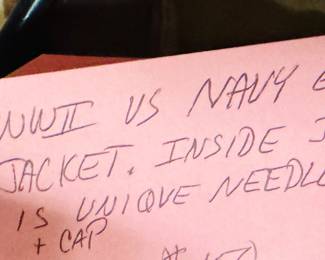 WWII US NAVY
JACKET. INSIDE
IS UNIQUE
+ CAP